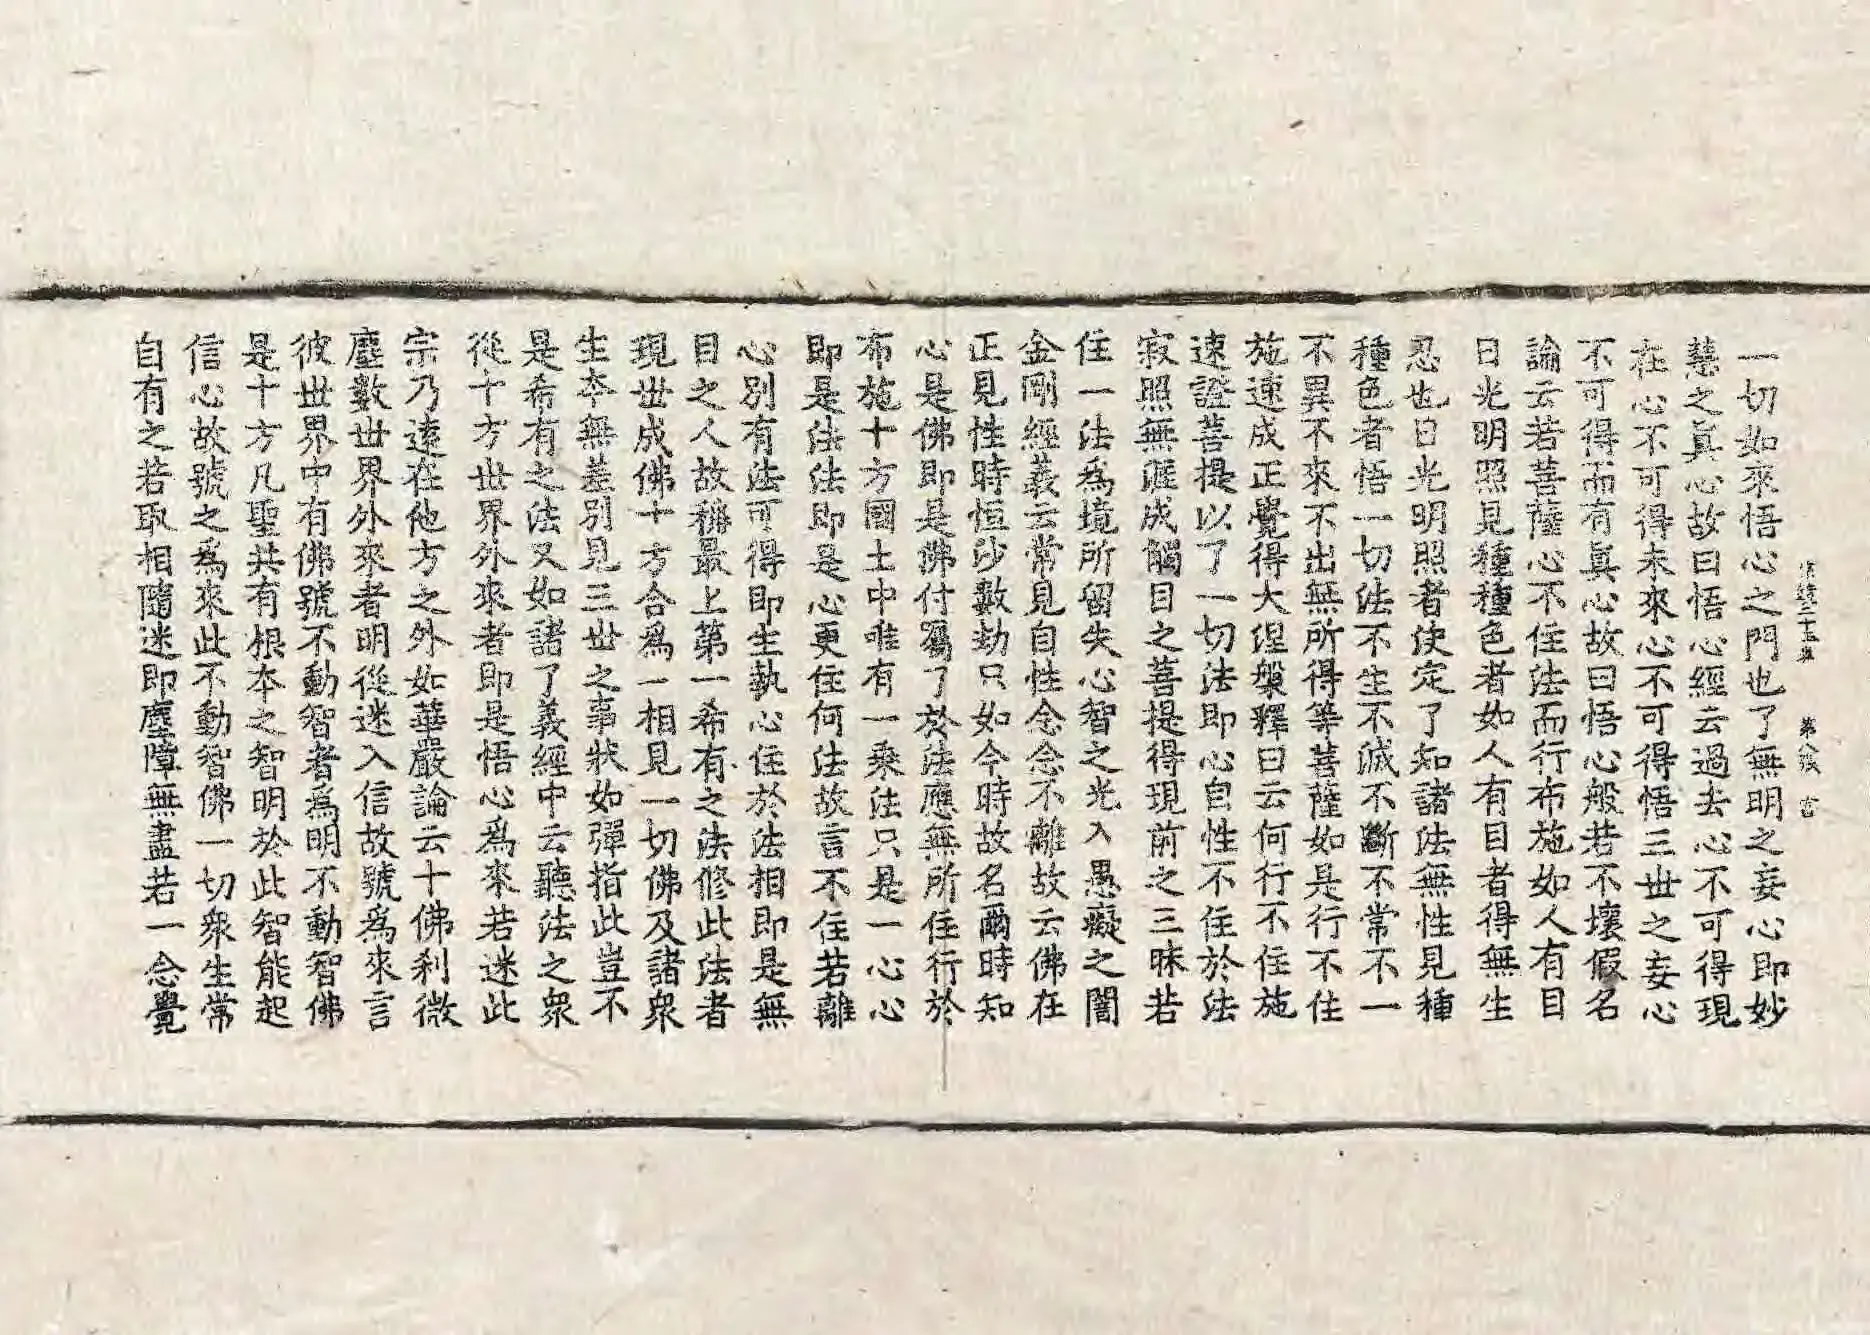 宗鏡二十五卷 第八張 言
一切如來悟心之門也了無明之妄心即妙
慧之眞心故曰悟心經云過去心不可得現
在心不可得未來心不可得悟三世之妄心
不可得而有眞心故曰悟心般若不壞假名
論云若菩薩心不住法而行布施如人有目
日光明照見種種色者如人有目者得無生
忍也日光明照者使定了知諸法無性見種
種色者悟一切法不生不滅不斷不常不一
不異不來不出無所得等菩薩如是行不住
施速成正覺得大涅槃釋曰云何行不住施
速證菩提以了一切法即心自性不住於法
寂照無涯成觸目之菩提得現前之三昧若
住一法爲境所留失心智之光入愚癡之闇
金剛經義云常見自性念念不離故云佛在
正見性時恒沙數劫只如今時故名爾時知
心是佛即是佛付屬了於法應無所住行於
布施十方國土中唯有一乘法只是一心心
即是法法即是心更住何法故言不住若離
心別有法可得即生執心住於法相即是無
目之人故稱最上第一希有之法修此法者
現世成佛十方合爲一相見一切佛及諸衆
生夲無差別見三世之事狀如彈指此豈不
是希有之法又如諸了義經中云聽法之衆
從十方世界外來者即是悟心爲來若迷此
宗乃遠在他方之外如華嚴論云十佛剎微
塵數世界外來者明從迷入信故號爲來言
彼世界中有佛號不動智者爲明不動智佛
是十方凡聖共有根夲之智明於此智能起
信心故號之爲來此不動智佛一切衆生常
自有之若取相隨迷即塵障無盡若一念覺